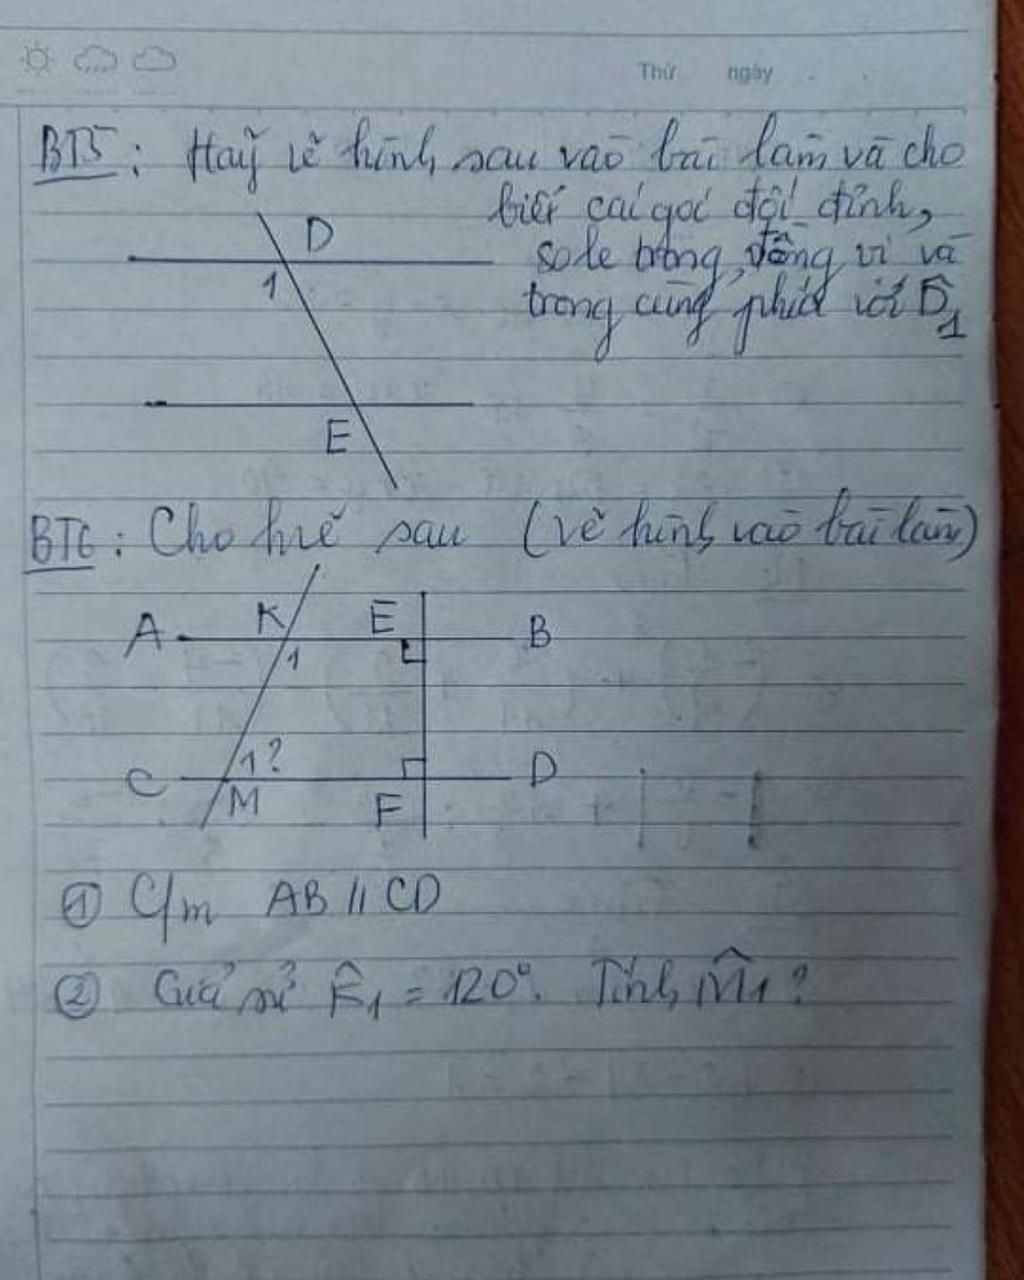 Thứ ngày
BT5: Hãy vẽ hình sau vào bài làm và cho
biết các góc đối đỉnh,
so le trong, đồng vị và
trong cùng phía với D̂1
D
1
E
BT6: Cho hvẽ sau (vẽ hình vào bài làm)
A K E B
1
1?
C M F D
① C/m AB // CD
② Giả sử K̂1 = 120°. Tính M̂1?